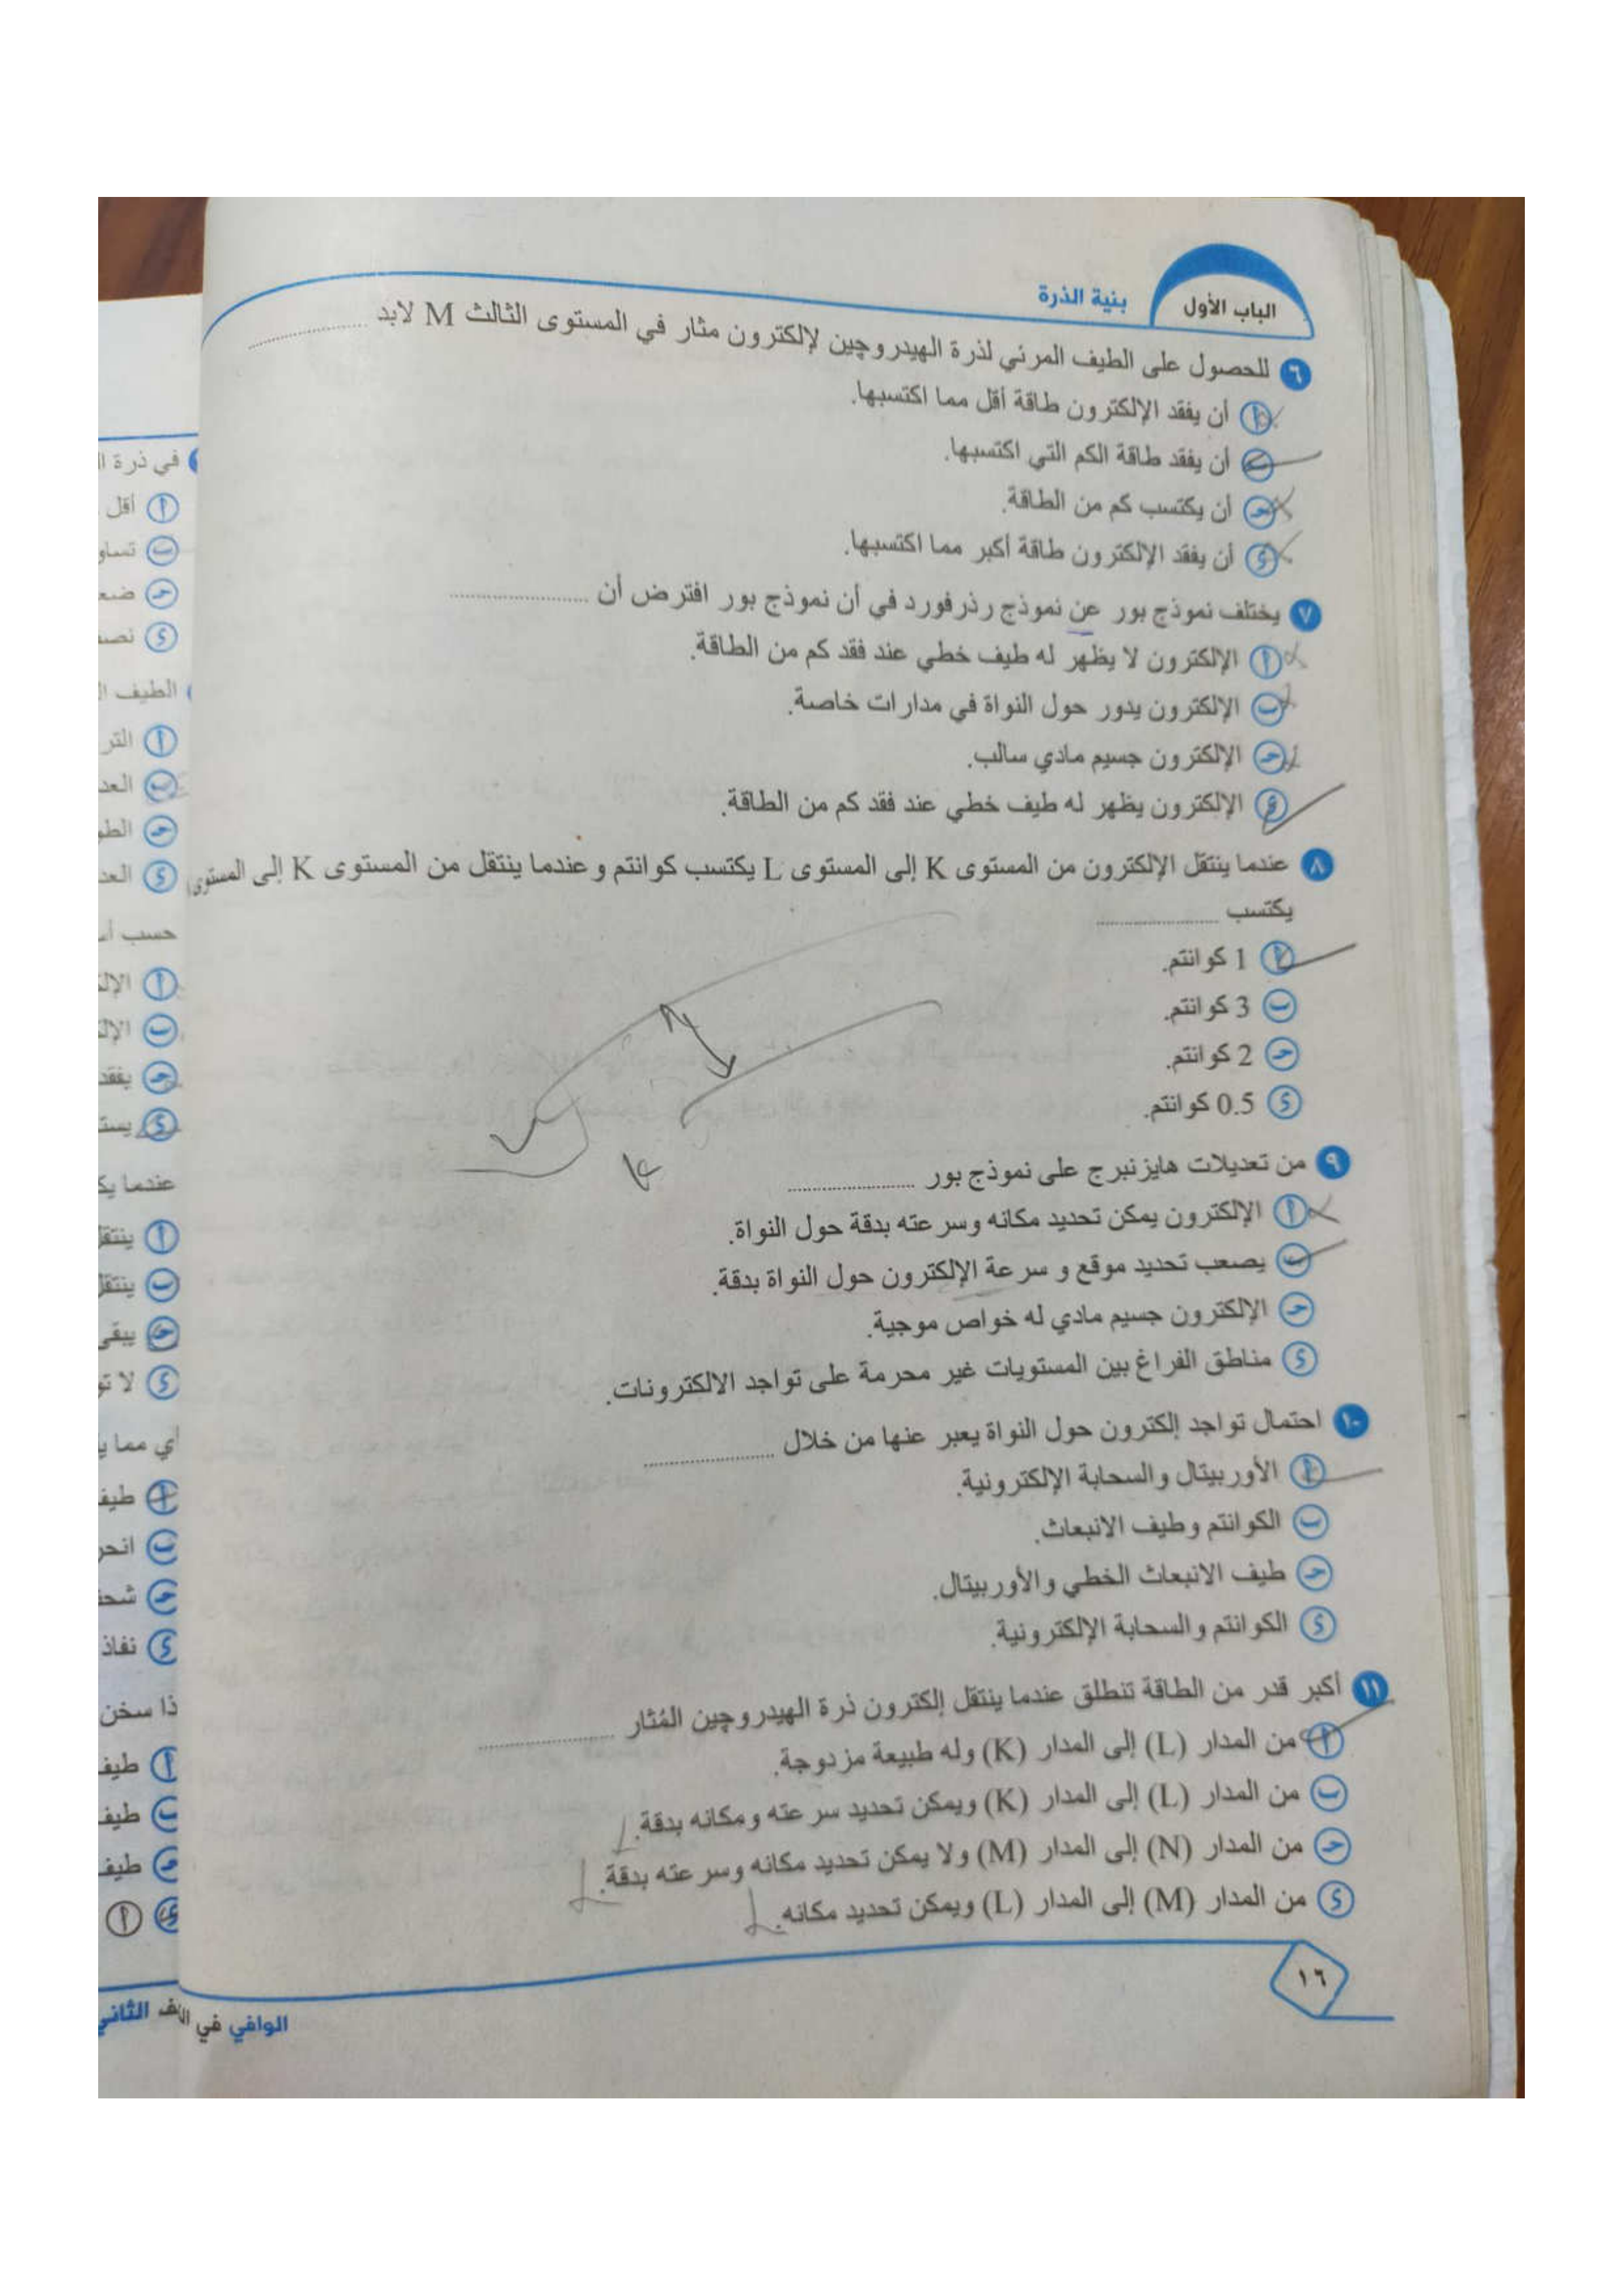 الباب الأول
بنية الذرة
٦ للحصول على الطيف المرئي لذرة الهيدروچين لإلكترون مثار في المستوى الثالث M لابد ............
أ أن يفقد الإلكترون طاقة أقل مما اكتسبها.
ب أن يفقد طاقة الكم التي اكتسبها.
حـ أن يكتسب كم من الطاقة.
د أن يفقد الإلكترون طاقة أكبر مما اكتسبها.
٧ يختلف نموذج بور عن نموذج رذرفورد في أن نموذج بور افترض أن ............
أ الإلكترون لا يظهر له طيف خطي عند فقد كم من الطاقة.
ب الإلكترون يدور حول النواة في مدارات خاصة.
حـ الإلكترون جسيم مادي سالب.
د الإلكترون يظهر له طيف خطي عند فقد كم من الطاقة.
٨ عندما ينتقل الإلكترون من المستوى K إلى المستوى L يكتسب كوانتم وعندما ينتقل من المستوى K إلى المستوى
يكتسب ............
أ 1 كوانتم.
ب 3 كوانتم.
حـ 2 كوانتم.
د 0.5 كوانتم.
K
٩ من تعديلات هايزنبرج على نموذج بور ............
أ الإلكترون يمكن تحديد مكانه وسرعته بدقة حول النواة.
ب يصعب تحديد موقع و سرعة الإلكترون حول النواة بدقة.
حـ الإلكترون جسيم مادي له خواص موجية.
د مناطق الفراغ بين المستويات غير محرمة على تواجد الالكترونات.
١٠ احتمال تواجد إلكترون حول النواة يعبر عنها من خلال ............
أ الأوربيتال والسحابة الإلكترونية.
ب الكوانتم وطيف الانبعاث.
حـ طيف الانبعاث الخطي والأوربيتال.
د الكوانتم والسحابة الإلكترونية.
١١ أكبر قدر من الطاقة تنطلق عندما ينتقل إلكترون ذرة الهيدروچين المُثار ............
أ من المدار (L) إلى المدار (K) وله طبيعة مزدوجة.
ب من المدار (L) إلى المدار (K) ويمكن تحديد سرعته ومكانه بدقة.
حـ من المدار (N) إلى المدار (M) ولا يمكن تحديد مكانه وسرعته بدقة.
د من المدار (M) إلى المدار (L) ويمكن تحديد مكانه.
١٦
الوافي في
في ذرة
أ أقل
ب
حـ
د
الطيف
أ
ب
حـ
د
حسب
أ
ب
حـ يفقد
د
عندما
أ
ب
حـ يبقى
د لا
أي مما
أ طيف
ب
حـ
د نفاذ
سخن
أ طيف
ب طيف
حـ طيف
د أ
الثاني